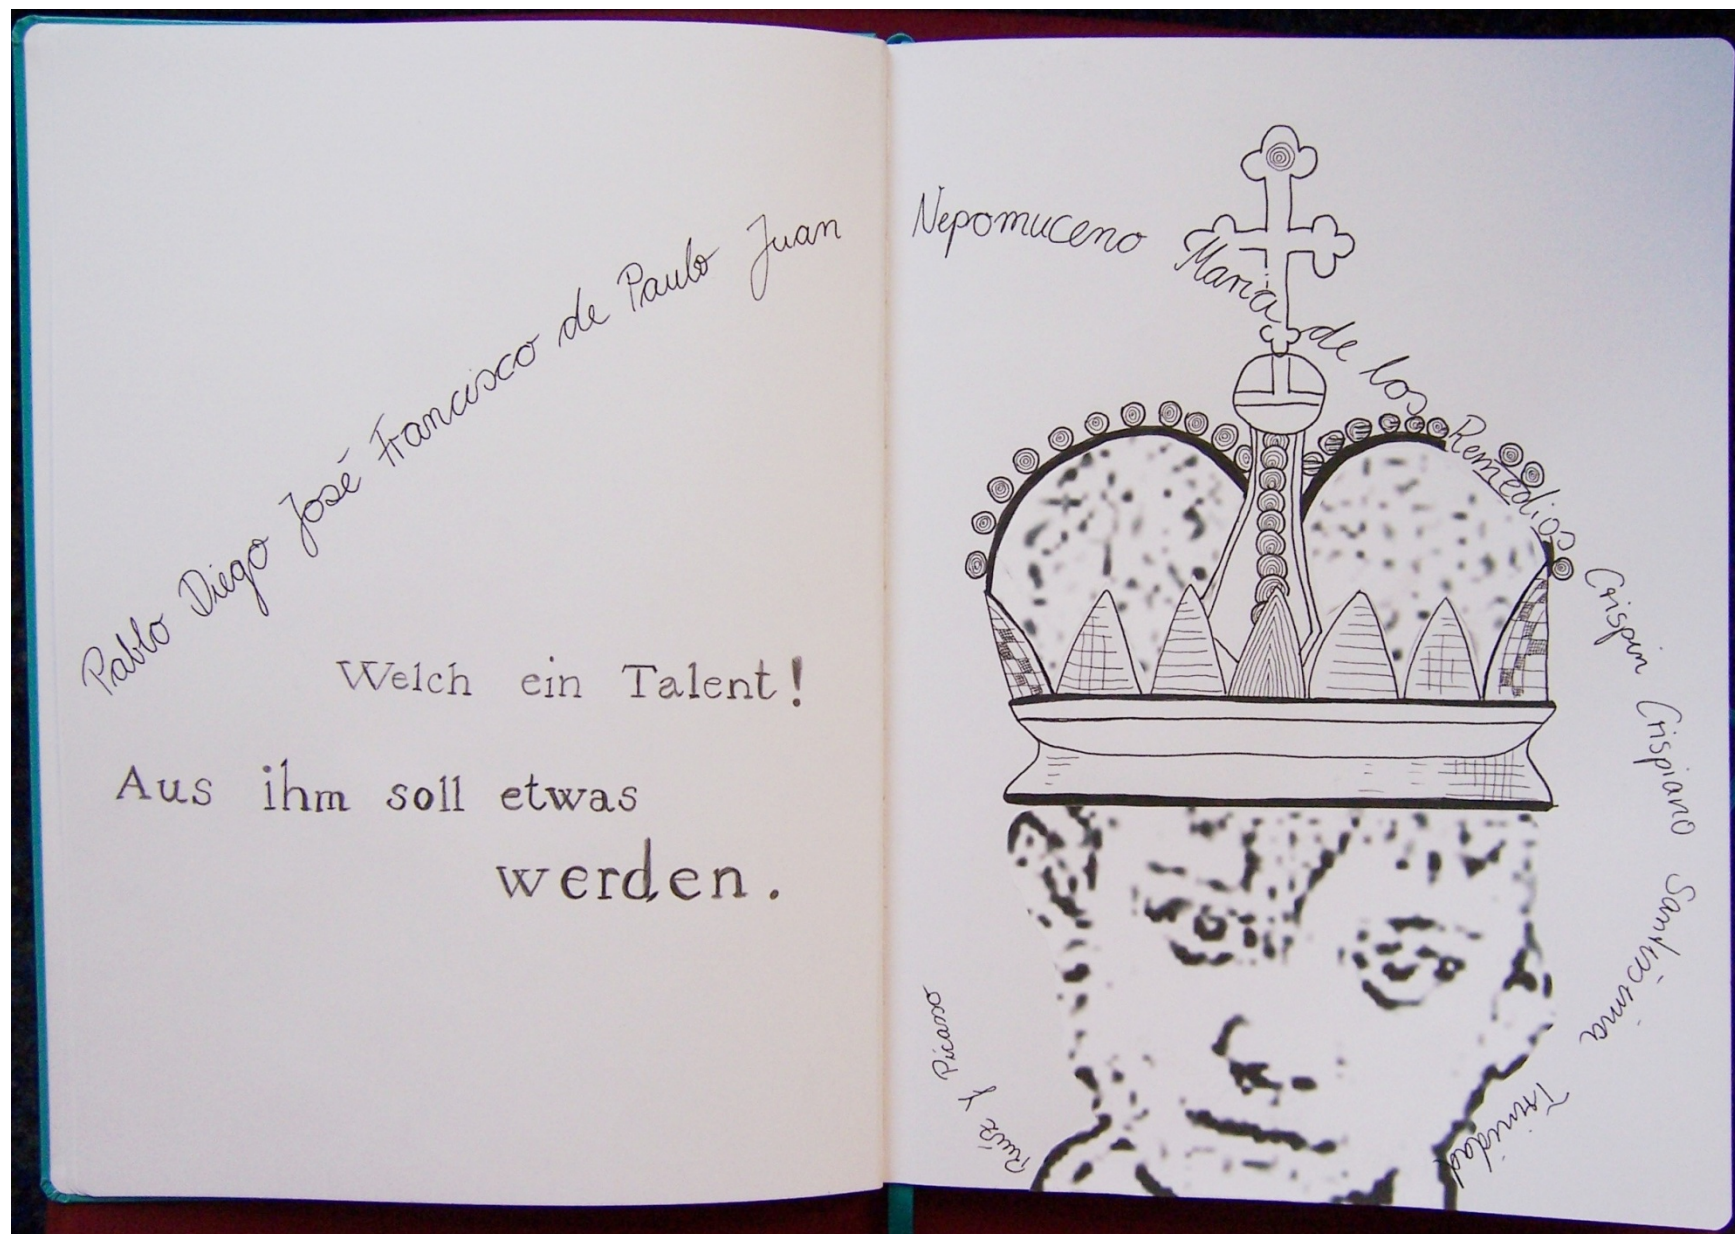 Pablo Diego José Francisco de Paulo Juan
Nepomuceno Maria de los Remedios Crispin Crispiano Santissima Trinidad
Ruíz y Picasso
Welch ein Talent!
Aus ihm soll etwas
werden.